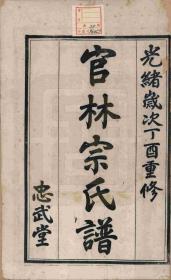 光緒歲次丁酉重修
官林宗氏譜
忠武堂